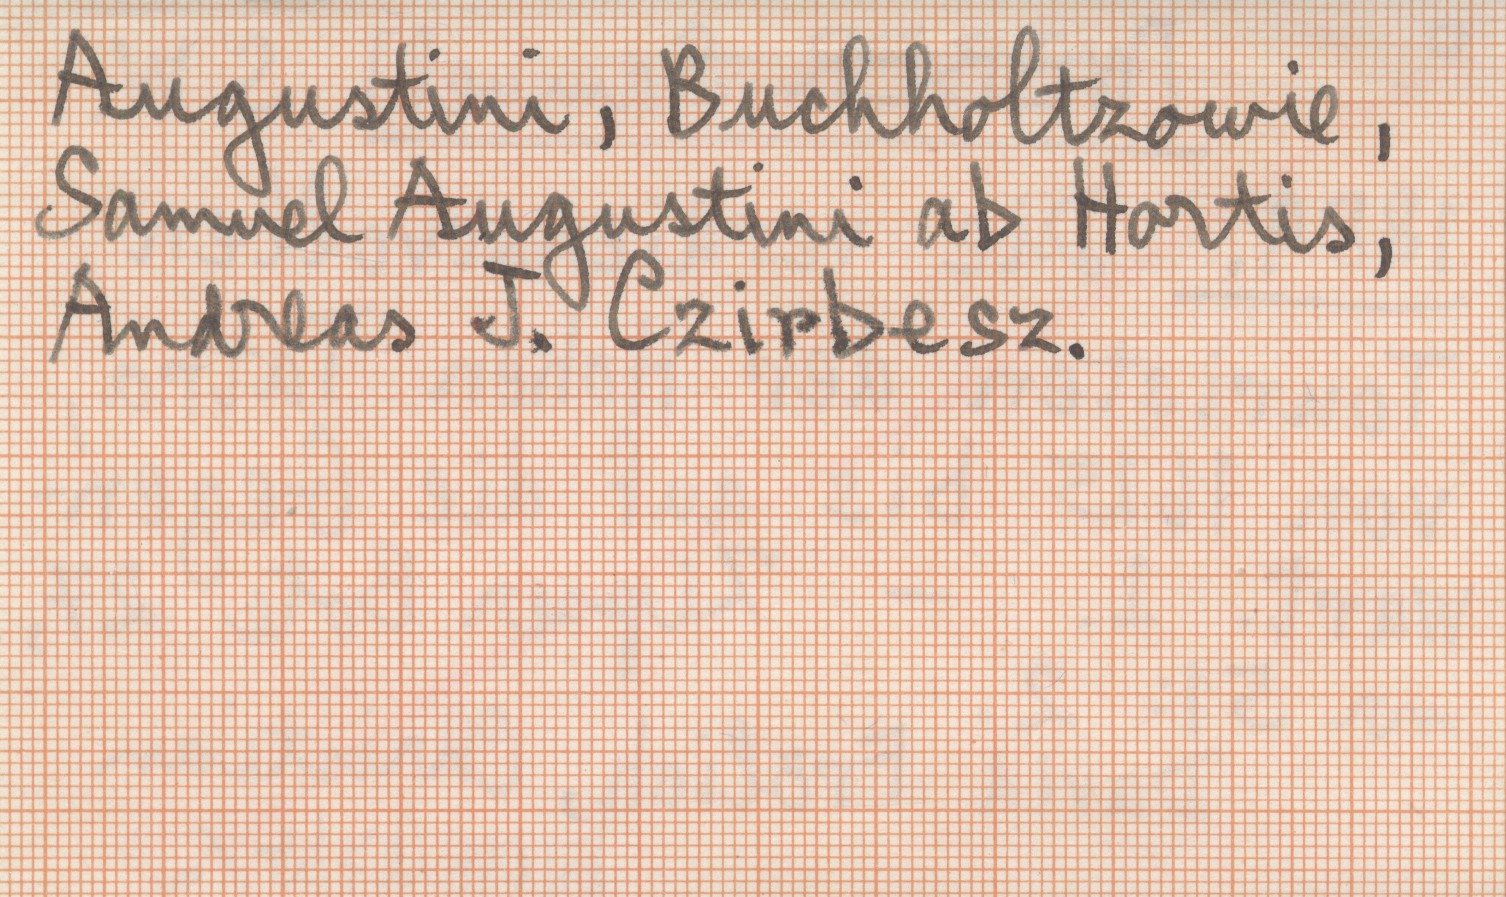 Augustini, Buchholtzowie,
Samuel Augustini ab Hortis,
Andreas J. Czirbesz.